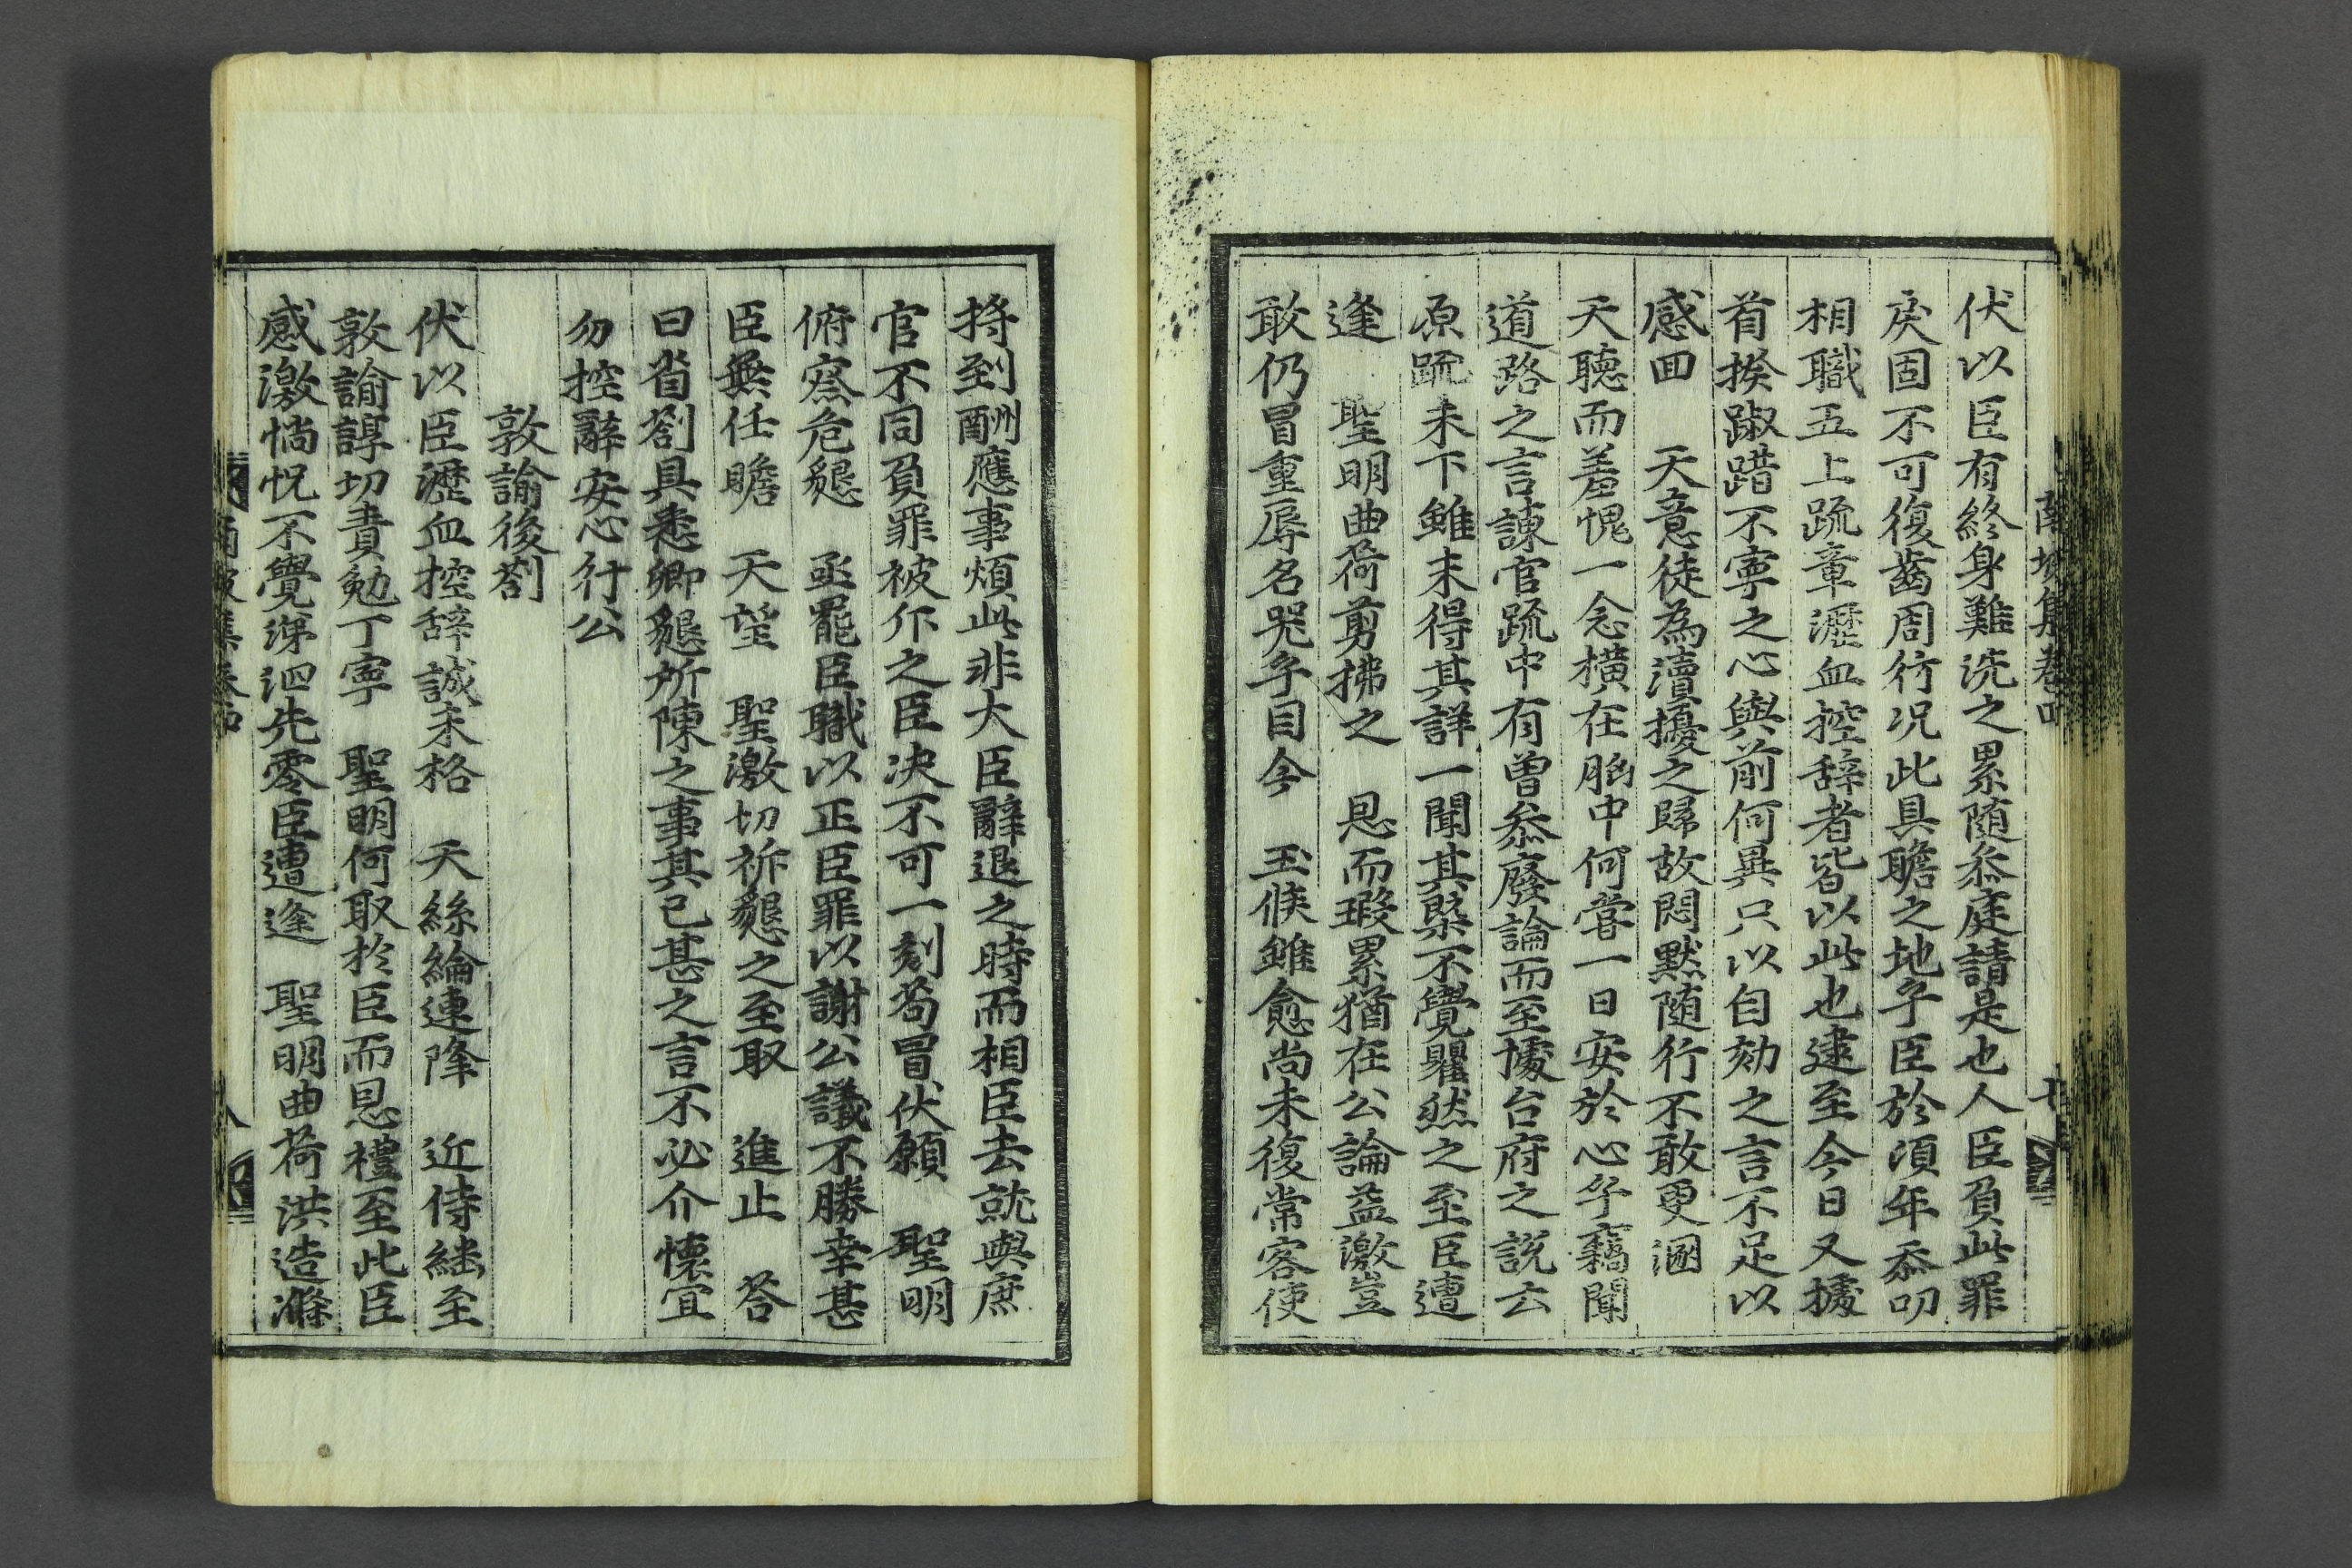 伏以臣有終身難洗之累随叅庭請是也人臣負此罪
戾固不可復齒周行况此具瞻之地乎臣於頃年忝叨
相職五上疏章瀝血控辞者皆以此也逮至今日又據
首揆踧踖不寧之心與前何異只以自劾之言不足以
感回　天意徒為瀆擾之歸故悶黙随行不敢更溷
天聴而羞愧一念横在胷中何嘗一日安於心乎竊聞
道路之言諫官疏中有曾叅廢論而至據台府之說云
原疏未下雖未得其詳一聞其槩不覺瞿然之至臣遭
逢　聖明曲荷剪拂之　恩而瑕累猶在公論益激豈
敢仍冒重辱名器乎目今　玉候雖愈尚未復常客使
将到酬應事煩此非大臣辭退之時而相臣去就與庶
官不同負罪被斥之臣决不可一刻苟冒伏願　聖明
俯察危懇　亟罷臣職以正臣罪以謝公議不勝幸甚
臣無任瞻　天望　聖激切祈懇之至取　進止　荅
曰省劄具悉卿懇所陳之事其已甚之言不必介懐宜
勿控辭安心行公
敦諭後劄
伏以臣瀝血控辞誠未格　天絲綸連降　近侍繼至
敦諭諄切責勉丁寧　聖明何取於臣而恩禮至此臣
感激惝怳不覺涕泗先零臣遭逢　聖明曲荷洪造滌